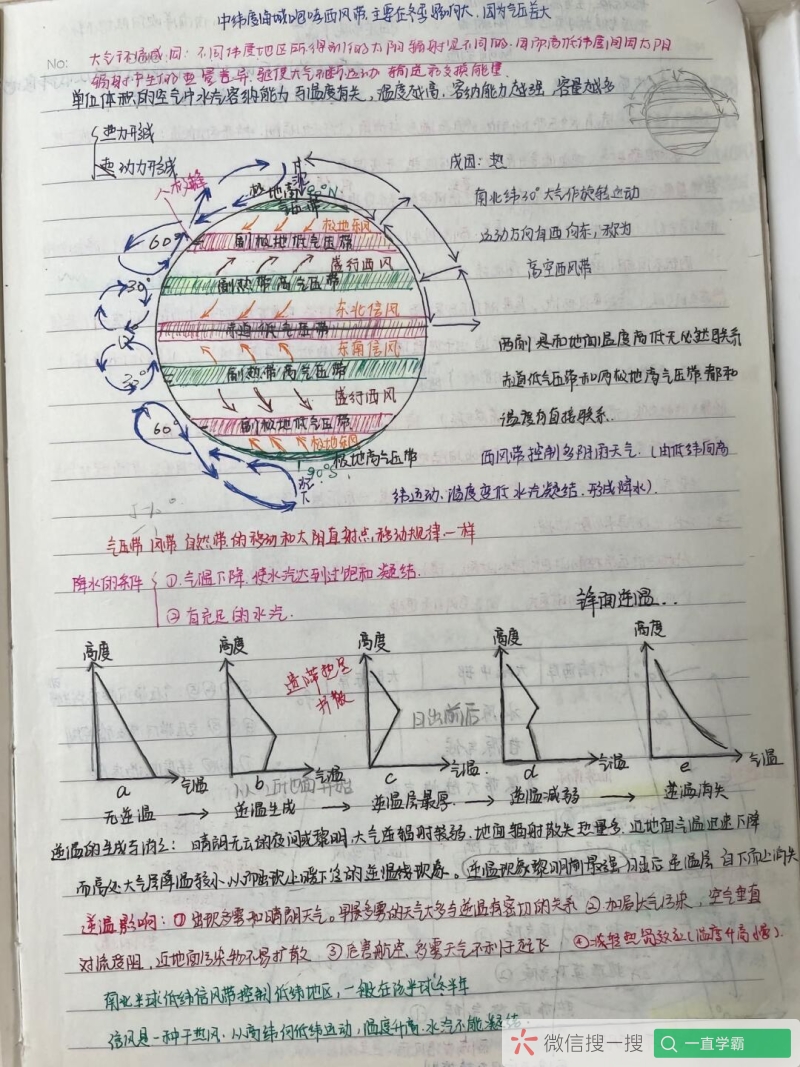 中纬度海域盛吹西风带,主要在冬季影响大,因为气压差大
No:
大气环流成因:不同纬度地区所得到的太阳辐射是不同的,因而高低纬度间因太阳
辐射产生的
差异,
单位体积的空气中水汽容纳能力与温度有关,温度越高,容纳能力越强,容量越多
热力形成
热动力形成
成因:热
极地高
90°N
气压带
南北纬30°大气作旋转运动
极地东风
60°
副极地低气压带
运动方向自西向东,称为
盛行西风
高空西风带
30°
副热带高气压带
东北信风
0°
赤道低气压带
东南信风
两副是和地面温度高低无必然联系
30°
副热带高气压带
赤道低气压带和两极地高气压带都和
盛行西风
温度有直接联系.
60°
副极地低气压带
极地东风
极地高气压带
西风带控制多阴雨天气.(由低纬向高
90°S
纬运动,温度变低水汽凝结,形成降水).
气压带 风带 自然带的移动和太阳直射点移动规律一样
降水的条件
①气温下降,使水汽达到过饱和凝结.
②有充足的水汽.
锋面逆温..
高度 高度 高度 高度 高度
日出前后
气温 气温 气温 气温 气温
a b c d e
从近地面开始
无逆温 → 逆温生成 → 逆温层最厚 → 逆温减弱 → 逆温消失
逆温的生成与消亡:晴朗无云的夜间或黎明,大气逆辐射较弱,地面辐射散失热量多,近地面气温迅速下降
而高处大气层降温较小,从而出现上暖下冷的逆温现象。逆温现象黎明前最强,日出后逆温层自下而上消失
逆温影响:①出现多雾和晴朗天气。早晨多雾的天气大多与逆温有密切的关系 ②加居大气污染,空气垂直
对流受阻,近地面污染物不易扩散 ③危害航空,多雾天气不利于起飞 ④减轻热岛效应(温度升高慢).
南北半球低纬信风带控制低纬地区,一般在该半球冬半年
信风是一种干热风,从高纬向低纬运动,温度升高,水汽不能凝结
微信搜一搜
一直学霸